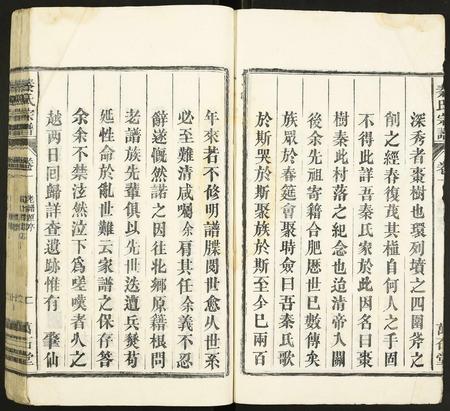 深秀者棗樹也環列墳之四圍斧之
削之經春復茂其植自何人之手固
不得此詳吾秦氏家於此因名曰棗
樹秦此村落之紀念也迨清帝入關
後余先祖寄籍合肥歷世已數傳矣
族眾於春筵會聚時僉曰吾秦氏歌
於斯哭於斯聚族於斯至今已兩百
年來若不修明譜牒閱世愈久世系
必至難清咸囑余肩其任余義不忍
辭遂慨然諾之因往北鄉原籍根問
老譜族先輩俱以先世迭遭兵燹苟
延性命於亂世難云家譜之保存答
余余不禁泫然泣下為嗟嘆者久之
越兩日回歸詳查遺跡惟有 發仙
秦氏宗譜
卷
二
萬石堂
秦氏宗譜
卷
萬石堂